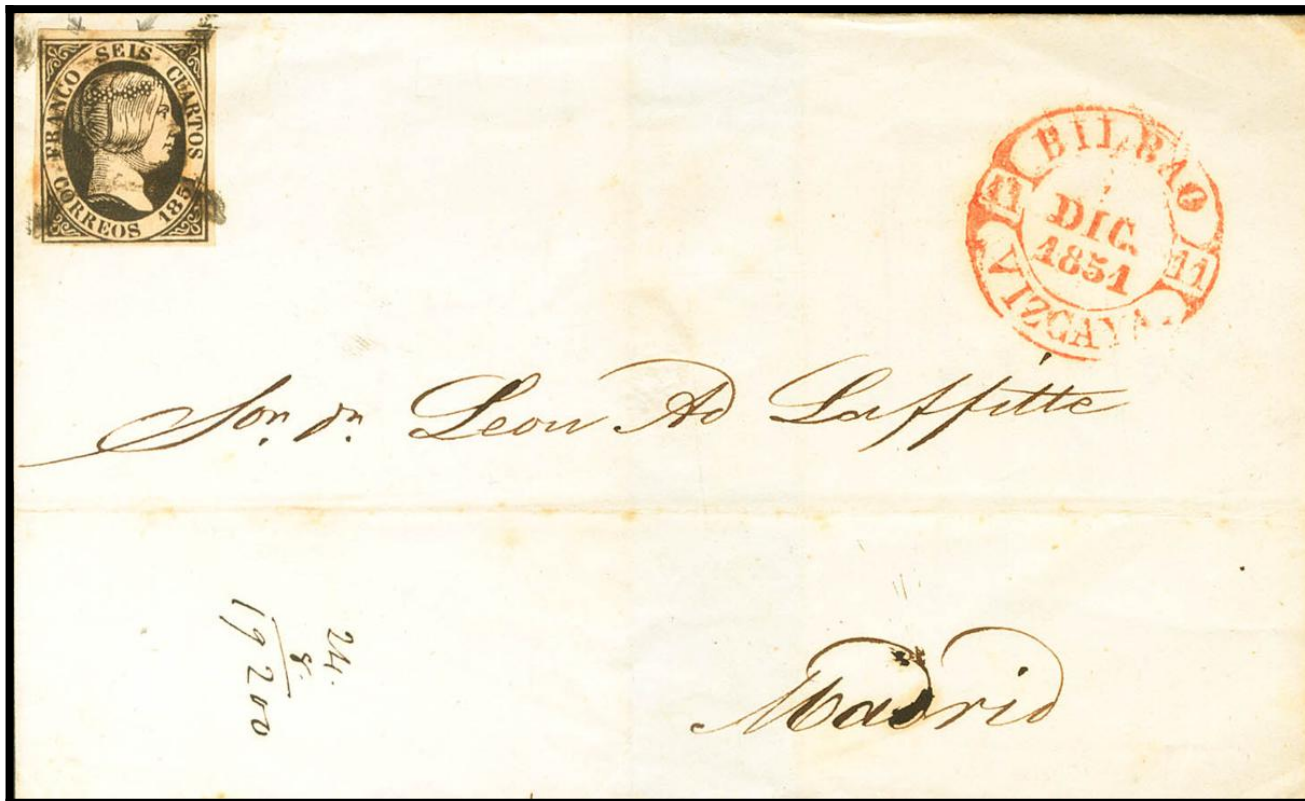 FRANCO SEIS CUARTOS
CORREOS 1851
BILBAO
7
DIC.
1851
11 11
VIZCAYA.
Sor. dn. Leon Ad Laffitte
Madrid
24.
8.
19200